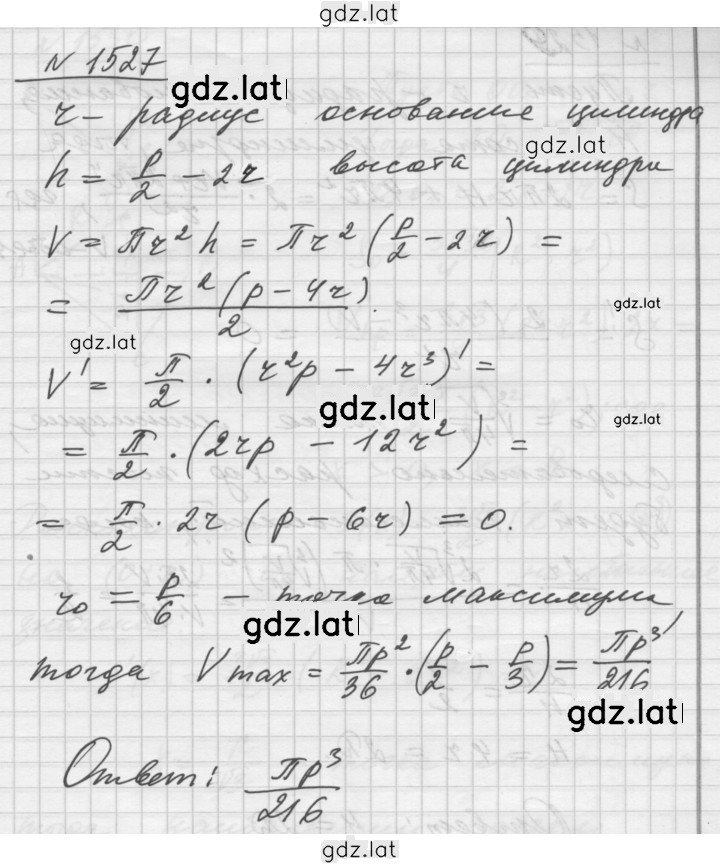 gdz.lat
N 1527
gdz.lat
r – радиус основание цилиндра
gdz.lat
h = p/2 – 2r высота цилиндра
V = πr² h = πr² (p/2 – 2r) =
= πr²(p – 4r)/2
gdz.lat
gdz.lat
V' = π/2 · (r²p – 4r³)' =
gdz.lat
gdz.lat
= π/2 · (2rp – 12r²) =
= π/2 · 2r (p – 6r) = 0.
r₀ = p/6 – точка максимума
gdz.lat
тогда V max = πp²/36 · (p/2 – p/3) = πp³/216
gdz.lat
Ответ: πp³/216
gdz.lat